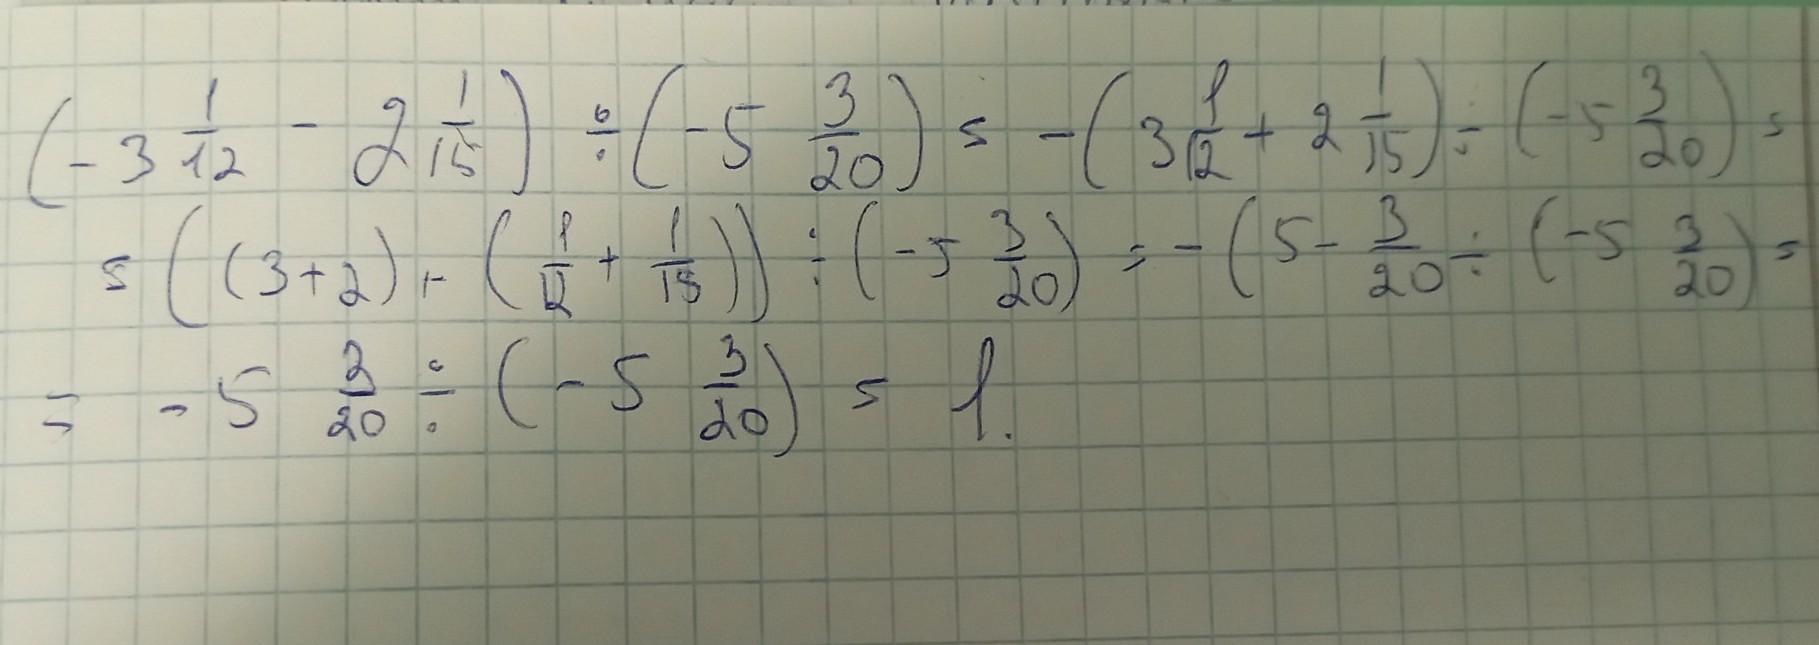 (-3 1/12 - 2 1/15) ÷ (-5 3/20) = -(3 1/12 + 2 1/15) ÷ (-5 3/20) =
= ((3+2) + (1/12 + 1/15)) ÷ (-5 3/20) = -(5 - 3/20 ÷ (-5 3/20) =
= -5 3/20 ÷ (-5 3/20) = 1.